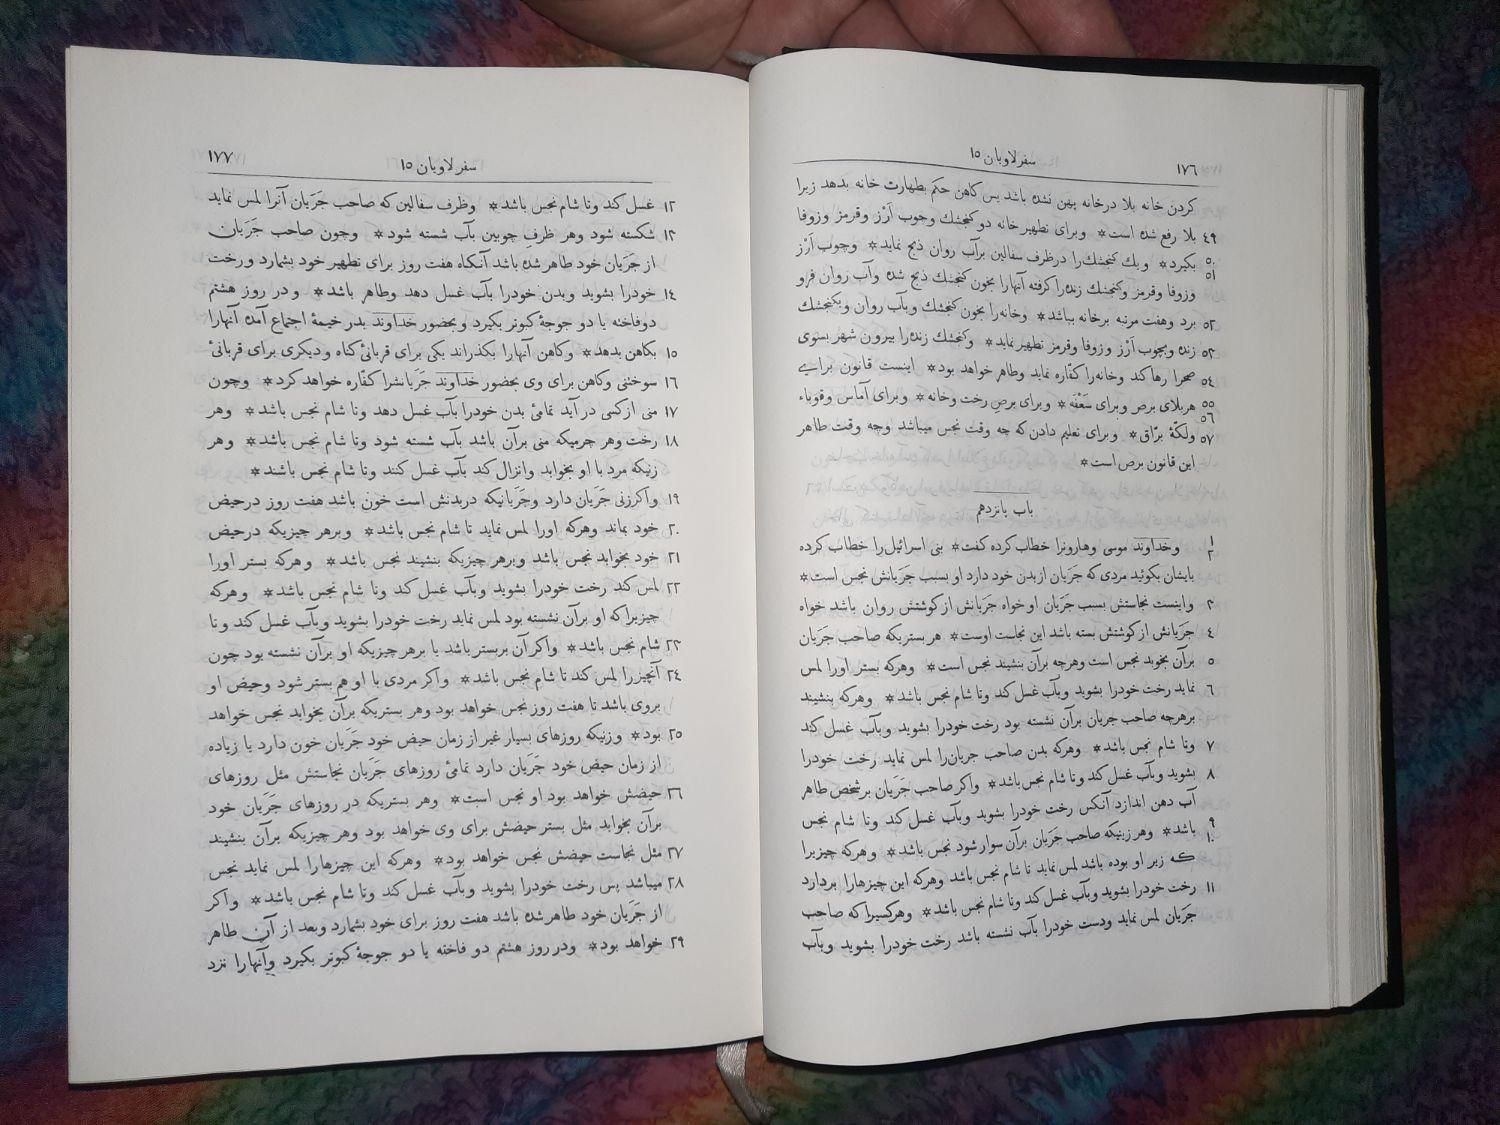 ١٧٦
سفر لاویان ١٥
کردن خانه بلا درخانه پهن نشده باشد پس کاهن حکم بطهارت خانه بدهد زیرا
٤٩ بلا رفع شده است* وبرای تطهیر خانه دو کنجشك وچوب اَرْز وقرمز وزوفا
٥٠ بکیرد* ویك کنجشك را درظرف سفالین برآب روان ذبح نماید* وچوب اَرْز
٥١ وزوفا وقرمز وکنجشك زنده‌را کرفته آنهارا بخون کنجشك ذبح شده وآب روان فرو
٥٢ برد وهفت مرتبه برخانه بپاشد* وخانه‌را بخون کنجشك وبآب روان وبکنجشك
٥٣ زنده وبچوب اَرْز وزوفا وقرمز تطهیر نماید* وکنجشك زنده‌را بیرون شهر بسوی
٥٤ صحرا رها کند وخانه‌را کفّاره نماید وطاهر خواهد بود* اینست قانون برای
٥٥ هربلای برص وبرای سَعْفَه* وبرای برصِ رخت وخانه* وبرای آماس وقوباء
٥٦ ٥٧ ولکّهٔ برّاق* وبرای تعلیم دادن که چه وقت نجس میباشد وچه وقت طاهر
این قانون برص است*
باب پانزدهم
١ ٢ وخداوند موسی وهارونرا خطاب کرده کفت* بنی اسرائیل‌را خطاب کرده
بایشان بکوئید مردی که جَرَیان ازبدن خود دارد او بسبب جَرَیانش نجس است*
٣ واینست نجاستش بسبب جَرَیان او خواه جَرَیانش ازکوشتش روان باشد خواه
٤ جَرَیانش ازکوشتش بسته باشد این نجاست اوست* هر بستریکه صاحب جَرَیان
٥ برآن بخوبد نجس است وهرچه برآن بنشیند نجس است* وهرکه بستر اورا لمس
٦ نماید رخت خودرا بشوید وبآب غسل کند وتا شام نجس باشد* وهرکه بنشیند
برهرچه صاحب جریان برآن نشسته بود رخت خودرا بشوید وبآب غسل کند
٧ وتا شام نجس باشد* وهرکه بدن صاحب جریان‌را لمس نماید رخت خودرا
٨ بشوید وبآب غسل کند وتا شام نجس‌باشد* واکر صاحب جَرَیان برشخص طاهر
آب دهن اندازد آنکس رخت خودرا بشوید وبآب غسل کند وتا شام نجس
٩ باشد* وهر زینیکه صاحب جَرَیان برآن سوار شود نجس باشد* وهرکه چیزیرا
١٠ که زیر او بوده باشد لمس نماید تا شام نجس باشد وهرکه این چیزهارا بردارد
١١ رخت خودرا بشوید وبآب غسل کند وتا شام نجس باشد* وهرکسیرا که صاحب
جَرَیان لمس نماید ودست خودرا بآب نشسته باشد رخت خودرا بشوید وبآب
سفر لاویان ١٥
١٧٧
١٢ غسل کند وتا شام نجس باشد* وظرف سفالین که صاحب جَرَیان آنرا لمس نماید
١٣ شکسته شود وهر ظرفِ چوبین بآب شسته شود* وچون صاحب جَرَیان
از جَرَیان خود طاهر شده باشد آنکاه هفت روز برای تطهیر خود بشمارد ورخت
١٤ خودرا بشوید وبدن خودرا بآب غسل دهد وطاهر باشد* ودر روز هشتم
دوفاخته یا دو جوجهٔ کبوتر بکیرد وبحضور خداوند بدرِ خیمهٔ اجتماع آمده آنهارا
١٥ بکاهن بدهد* وکاهن آنهارا بکذراند یکی برای قربانیٔ کناه ودیکری برای قربانیٔ
١٦ سوختنی وکاهن برای وی بحضور خداوند جَرَیانشرا کفّاره خواهد کرد* وچون
١٧ منی ازکسی درآید تمامیٔ بدن خودرا بآب غسل دهد وتا شام نجس باشد* وهر
١٨ رخت وهر چرمیکه منی برآن باشد بآب شسته شود وتا شام نجس باشد* وهر
زنیکه مرد با او بخوابد وانزال کند بآب غسل کنند وتا شام نجس باشند*
١٩ واکرزنی جَرَیان دارد وجَرَیانیکه دربدنش است خون باشد هفت روز درحیض
٢٠ خود بماند وهرکه اورا لمس نماید تا شام نجس باشد* وبرهر چیزیکه درحیض
٢١ خود بخوابد نجس باشد وبرهر چیزیکه بنشیند نجس باشد* وهرکه بستر اورا
٢٢ لمس کند رخت خودرا بشوید وبآب غسل کند وتا شام نجس باشد* وهرکه
چیزیرا که او برآن نشسته بود لمس نماید رخت خودرا بشوید وبآب غسل کند وتا
٢٣ شام نجس باشد* واکر آن بربستر باشد یا برهر چیزیکه او برآن نشسته بود چون
٢٤ آنچیزرا لمس کند تا شام نجس باشد* واکر مردی با او هم بستر شود وحیض او
بروی باشد تا هفت روز نجس خواهد بود وهر بستریکه برآن بخوابد نجس خواهد
٢٥ بود* وزنیکه روزهای بسیار غیر از زمان حیض خود جَرَیان خون دارد یا زیاده
از زمان حیض خود جَرَیان دارد تمامیٔ روزهای جَرَیان نجاستش مثل روزهای
٢٦ حیضش خواهد بود او نجس است* وهر بستریکه در روزهای جَرَیان خود
برآن بخوابد مثل بستر حیضش برای وی خواهد بود وهر چیزیکه برآن بنشیند
٢٧ مثل نجاست حیضش نجس خواهد بود* وهرکه این چیزهارا لمس نماید نجس
٢٨ میباشد پس رخت خودرا بشوید وبآب غسل کند وتا شام نجس باشد* واکر
از جَرَیان خود طاهر شده باشد هفت روز برای خود بشمارد وبعد از آن طاهر
٢٩ خواهد بود* ودر روز هشتم دو فاخته یا دو جوجهٔ کبوتر بکیرد وآنهارا نزد